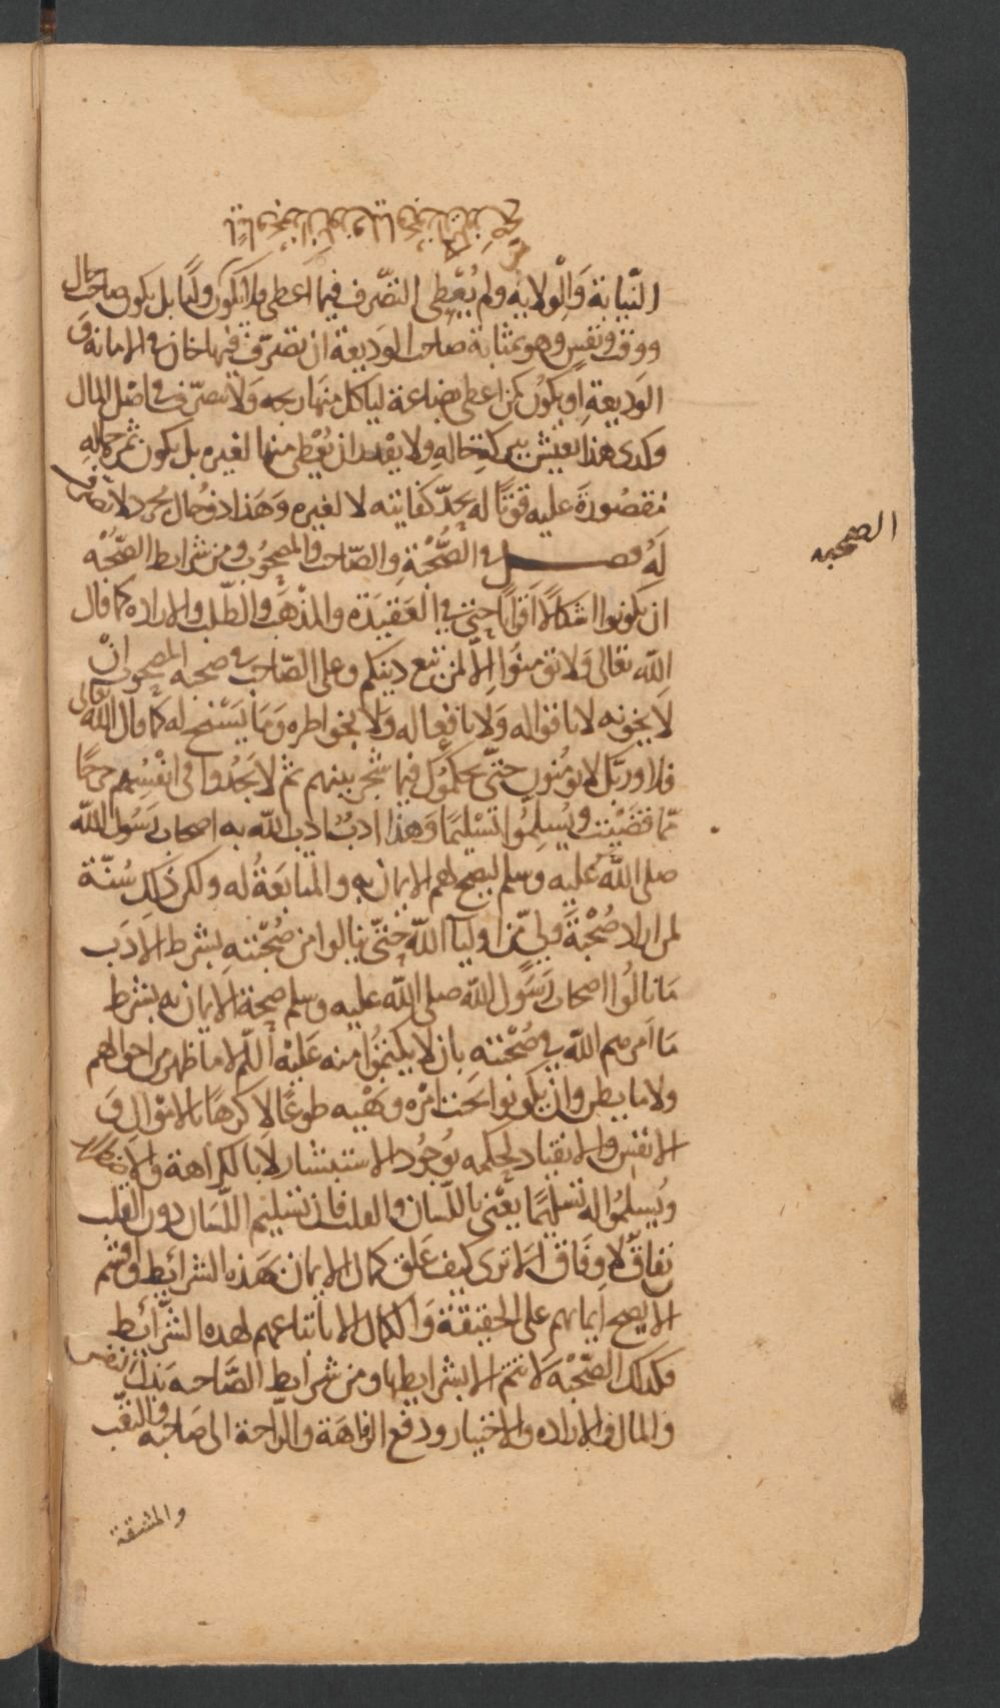 النّيابة والولاية ولم يُعطى التصّرف فيما اعطى فلا يكون وليًا بل يكون صاحب حال
ووقت ونفس وهو بمثابة صاحب الوديعة ان تصرّف فيها خان في الامانة و
الوديعة او يكون كمن اعطى بضاعة لياكل منها ربحه ولا يتصرّف في اصل المال
وكذى هذا يعيش ببركة حاله ولا يقدر ان يُعطى منها لغيره بل يكون ثمرة حاله
مقصُورة عليه قوتًا له بحدّ كفايته لا لغيره وهذا ذو حال مجرد لا تصرف
لهُ فصل في الصُّحْبَة والصّاحب والمصحُوب ومن شرايط الصّحْبه
الصحبه
ان يكونوا اشكالًا اقرانًا حتى في العقيدة والمذهب والطّلب والاراده كما قال
الله تعالى ولا تؤمنوا الّا لمن تبع دينكم وعلى الصّاحب في صحبه المصحوب انْ
لا يخونه لا باقواله ولا بافعاله ولا بخواطره وما يَسْنح له كما قال الله تعالى
فلا وربّك لا يؤمنون حتّى يحكّموك فيما شجر بينهم ثم لا يَجدُوا فى انفُسِهم حرجًا
ممّا قضَيْت ويُسلّمُوا تسْليمًا وهذا ادبٌ ادب الله به اصحاب رسُول الله
صلى الله عليه وسلم ليصح لهم الايمان به والمتابَعَةُ له وليكن ذلك سُنّة
لمن اراد صُحْبَةَ وليّ من اوليآ الله حتّى ينالوا من صُحْبته بشرط الادَب
مَا نالُوا اصحاب رَسُول الله صلى الله عليه وسلم صحبة الايمان به بشرط
مَا امرهم الله في صُحْبته بان لا يكتمُوا منه عَليْه السّلام ما ظهر من احوالهم
ولا ما بطن وان يكونوا تحت امْره ونَهْيه طوعًا لا كرهًا بالاموال و
الانفس والانقياد لحكمه بوُجُود الاستبشار لا بالكراهة والاضطرار
ويُسلمُوا له تسليمًا يعْنى باللّسان والقلب فان تسْليم اللّسان دون القلب
نفاقٌ لا وفَاق الَا ترى كيف عَلق كمال الايمان بهَذه الشرائط اوقسم
لا يصح ايمانهم على الحقيقة وَالكمال الا باتباعهم لهذه الشّرائط
فكذلك الصّحْبَة لا تتم الا بشرايطها ومن شرايط الصَّاحبه بَذل النفس
والمال والاراده والاختيار ودفع الرّفاهَة والرّاحة الى صَاحبه والتعَب
والمشقة